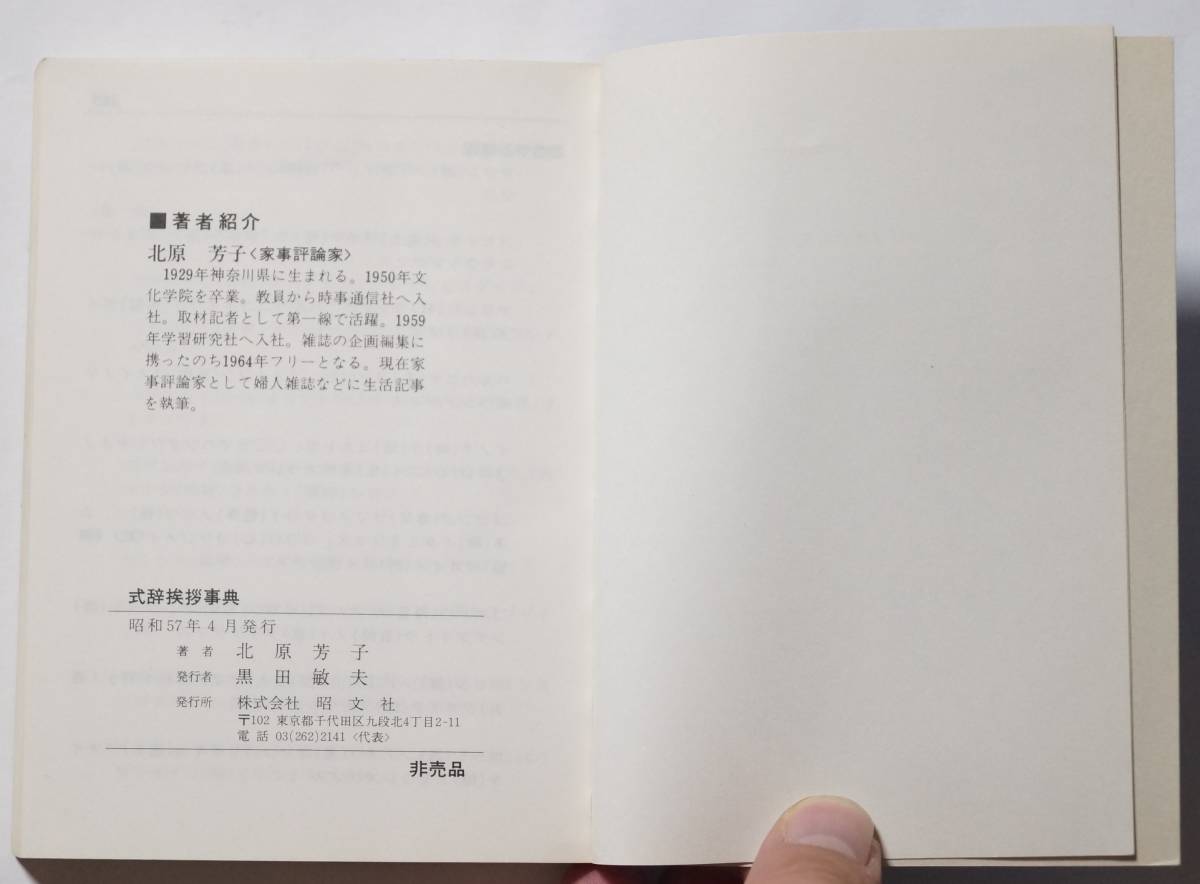 ■著者紹介
北原 芳子〈家事評論家〉
1929年神奈川県に生まれる。1950年文
化学院を卒業。教員から時事通信社へ入
社。取材記者として第一線で活躍。1959
年学習研究社へ入社。雑誌の企画編集に
携ったのち1964年フリーとなる。現在家
事評論家として婦人雑誌などに生活記事
を執筆。
式辞挨拶事典
昭和57年4月発行
著者 北原芳子
発行者 黒田敏夫
発行所 株式会社 昭文社
〒102 東京都千代田区九段北4丁目2-11
電話 03(262)2141〈代表〉
非売品